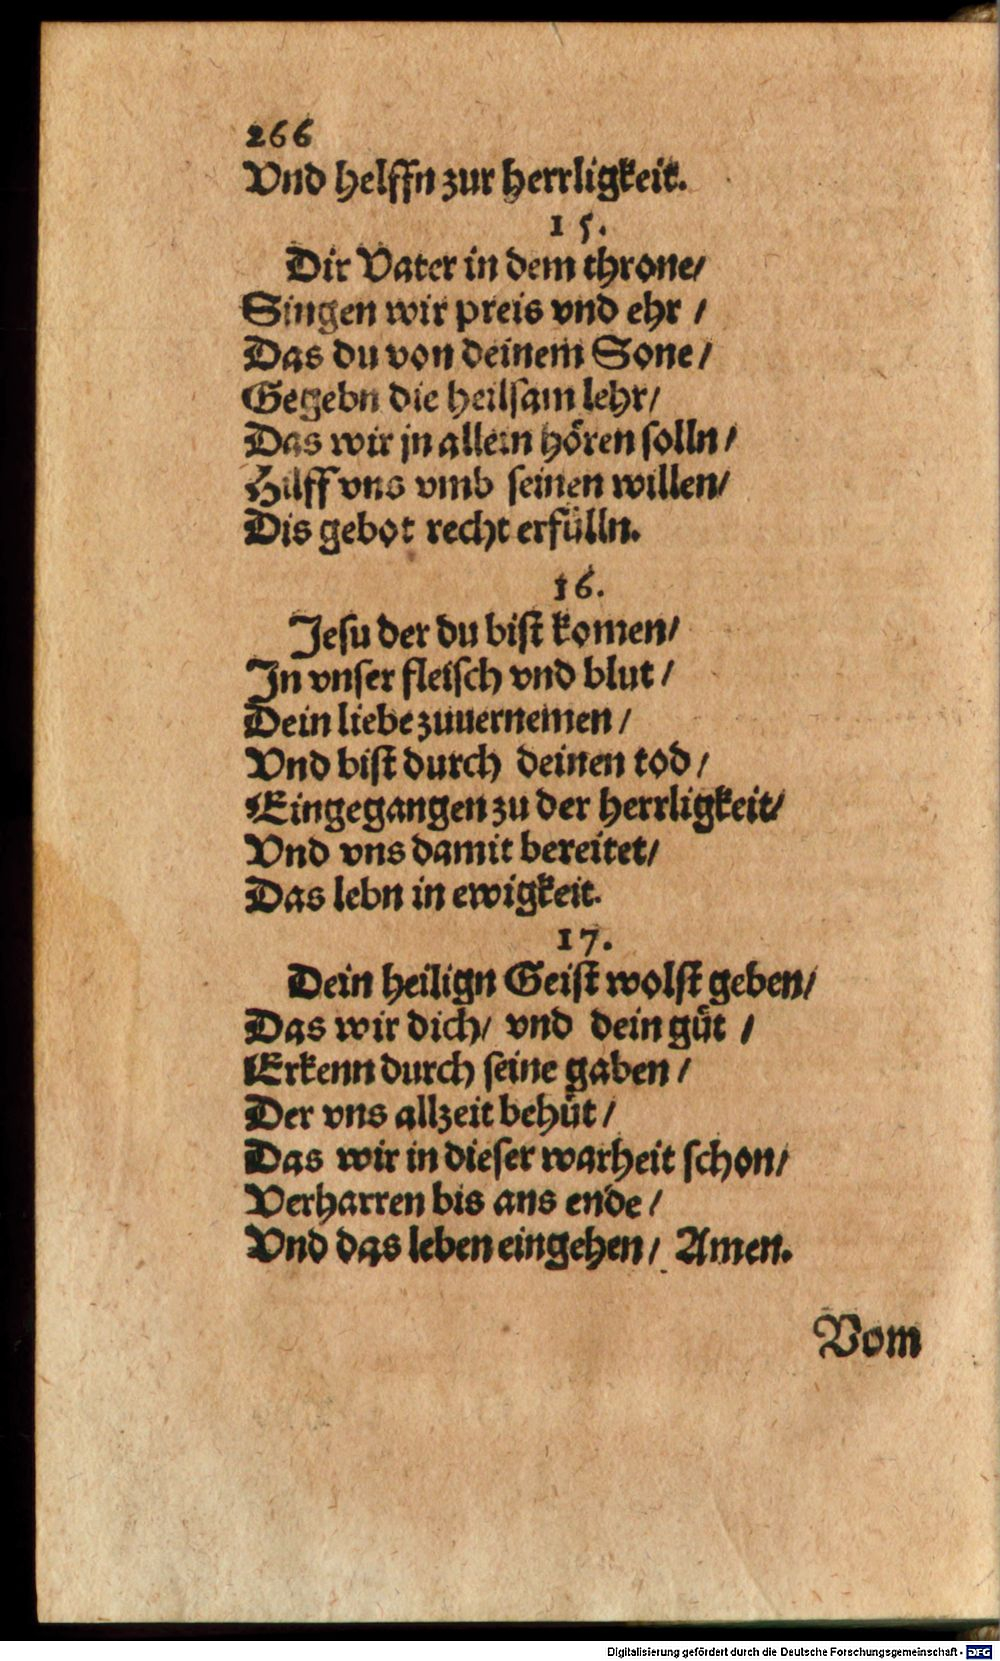 266
Vnd helffn zur herrligkeit.
15.
Dir Vater in dem throne/
Singen wir preis vnd ehr /
Das du von deinem Sone/
Gegebn die heilsam lehr/
Das wir jn allein hören solln/
Hilff vns vmb seinen willen/
Dis gebot recht erfülln.
16.
Jesu der du bist komen/
Jn vnser fleisch vnd blut /
Dein liebe zuuernemen /
Vnd bist durch deinen tod /
Eingegangen zu der herrligkeit/
Vnd vns damit bereitet/
Das lebn in ewigkeit.
17.
Dein heilign Geist wolst geben/
Das wir dich/ vnd dein güt /
Erkenn durch seine gaben /
Der vns allzeit behüt /
Das wir in dieser warheit schon/
Verharren bis ans ende /
Vnd das leben eingehen / Amen.
Vom
Digitalisierung gefördert durch die Deutsche Forschungsgemeinschaft - DFG